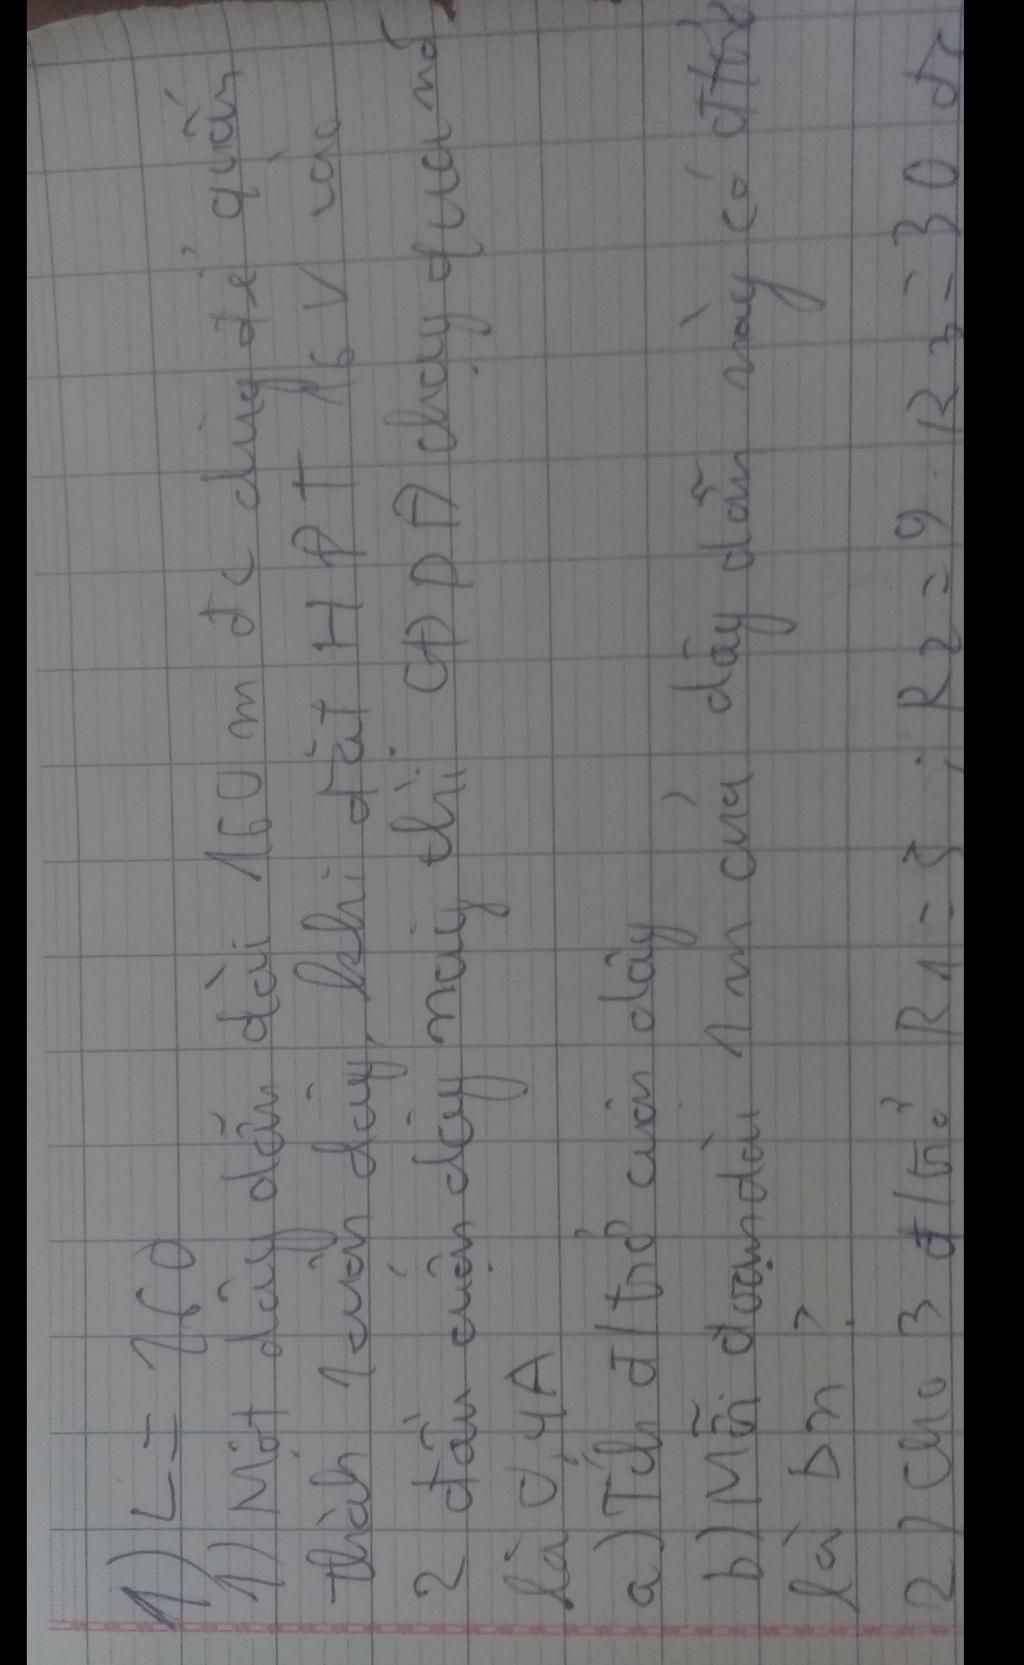 1) L = 160
1) Một dây dẫn dài 160 m đc dùng để quấn
thành 1 cuộn dây, khi đặt HĐT 16 V vào
2 đầu cuộn dây này thì CĐDĐ chạy qua nó
là 0,4A
a) Tính đ/trở cuộn dây
b) Mỗi đoạn dài 1 m của dây dẫn này có đ/trở
là bn ?
2) Cho 3 đ/trở R1 = 3 ; R2 = 9 ; R3 = 30 đc